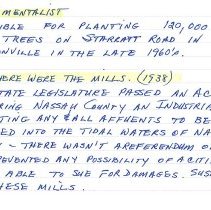 MENTALIST
IBLE FOR PLANTING 120,000
TREES ON STARRATT ROAD IN
ONVILLE IN THE LATE 1960's.
HERE WERE THE MILLS. (1938)
STATE LEGISLATURE PASSED AN AC
RING NASSAU COUNTY AN INDUSTRIA
TING ANY & ALL AFFUENTS TO BE
ED INTO THE TIDAL WATERS OF NA
- THERE WASN'T A REFERENDUM O
EVENTED ANY POSSIBILITY OF A CITI
ABLE TO SUE FOR DAMAGES. SUS
HESE MILLS.